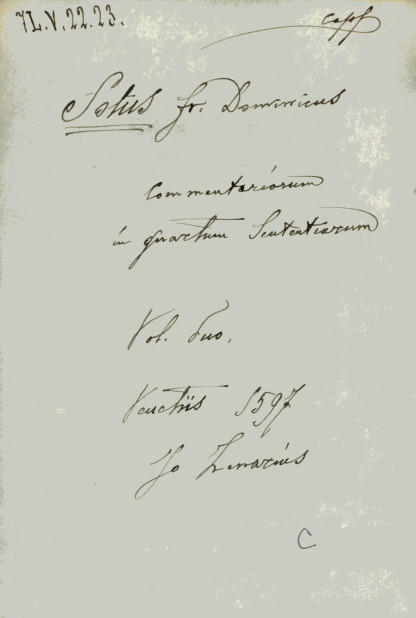 7L.V.22.23.
Sotus fr. Dominicus
Commentariorum
in quartum Sententiarum
Vol. duo.
Venetiis 1597
Jo Zenarius
C